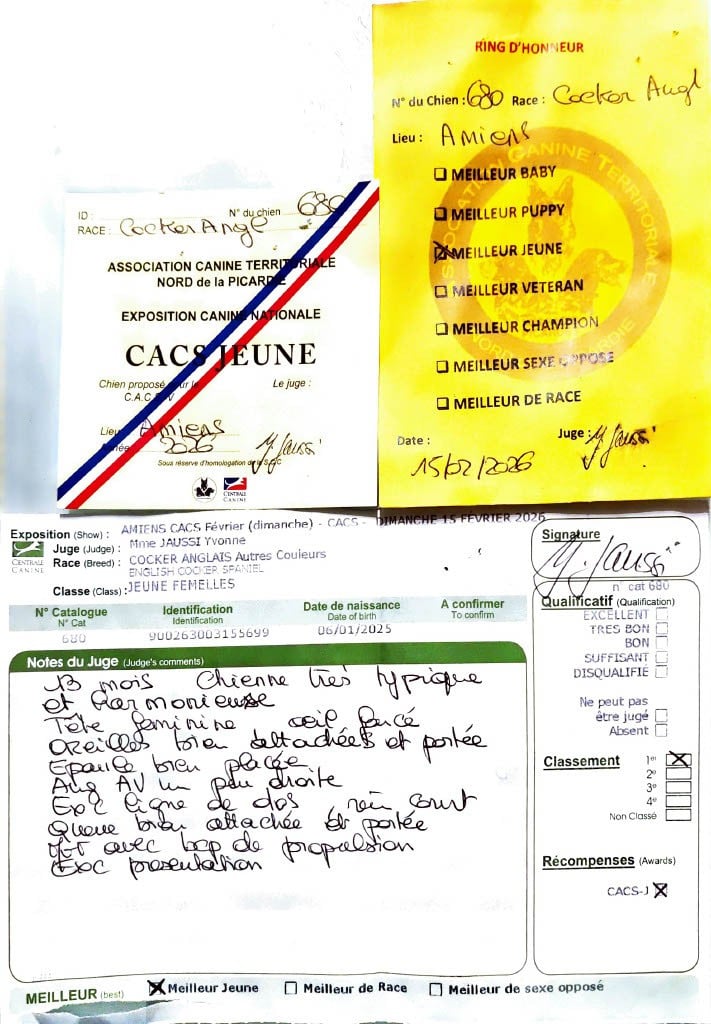 RING D'HONNEUR
N° du Chien : 680 Race : Cocker Angl
Lieu : Amiens
MEILLEUR BABY
MEILLEUR PUPPY
MEILLEUR JEUNE
MEILLEUR VETERAN
MEILLEUR CHAMPION
MEILLEUR SEXE OPPOSE
MEILLEUR DE RACE
Date : Juge : Y. Jaussi
15/02/2026
ASSOCIATION CANINE TERRITORIALE
ID : N° du chien 680
RACE : Cocker Angl
ASSOCIATION CANINE TERRITORIALE
NORD de la PICARDIE
EXPOSITION CANINE NATIONALE
CACS JEUNE
Chien proposé pour le Le juge :
Lieu Amiens
2026 Y. Jaussi
Sous réserve d'homologation de la S.C.C
CENTRALE
CANINE
Exposition (Show) : AMIENS CACS Février (dimanche) - CACS - DIMANCHE 15 FÉVRIER 2026
Juge (Judge) : Mme JAUSSI Yvonne
Race (Breed) : COCKER ANGLAIS Autres Couleurs
ENGLISH COCKER SPANIEL
Classe (Class) : JEUNE FEMELLES
CENTRALE
CANINE
Signature
Y. Jaussi
n° cat 680
N° Catalogue Identification Date de naissance A confirmer
N° Cat Identification Date of birth To confirm
680 900263003155699 06/01/2025
Notes du Juge (Judge's comments)
13 mois Chienne très typique
et harmonieuse
Tête féminine oeil foncé
Oreilles bien attachées et portée
Epaule bien placée
Ang AV un peu droite
Exc ligne de dos, rein court
Queue bien attachée et portée
avec bcp de propulsion
Exc presentation
Qualificatif (Qualification)
EXCELLENT
TRES BON
BON
SUFFISANT
DISQUALIFIÉ
Ne peut pas
être jugé
Absent
Classement 1er
2e
3e
4e
Non Classé
Récompenses (Awards)
CACS-J
MEILLEUR (best) Meilleur Jeune Meilleur de Race Meilleur de sexe opposé